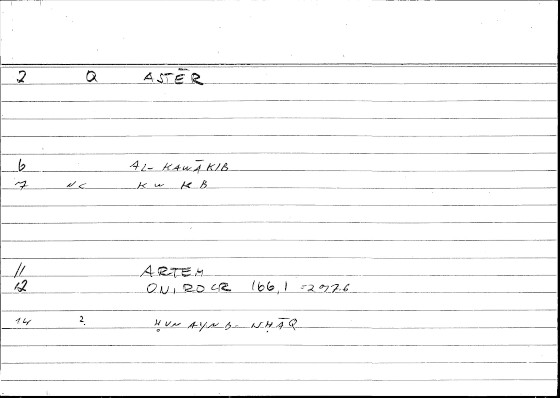 2 Q ASTĒR
6 AL-KAWĀKIB
7 NC KWKB
11 ARTEM
12 ONIROCR 166,1 =297.6
14 2. ḤUNAYN B- NḤĀQ